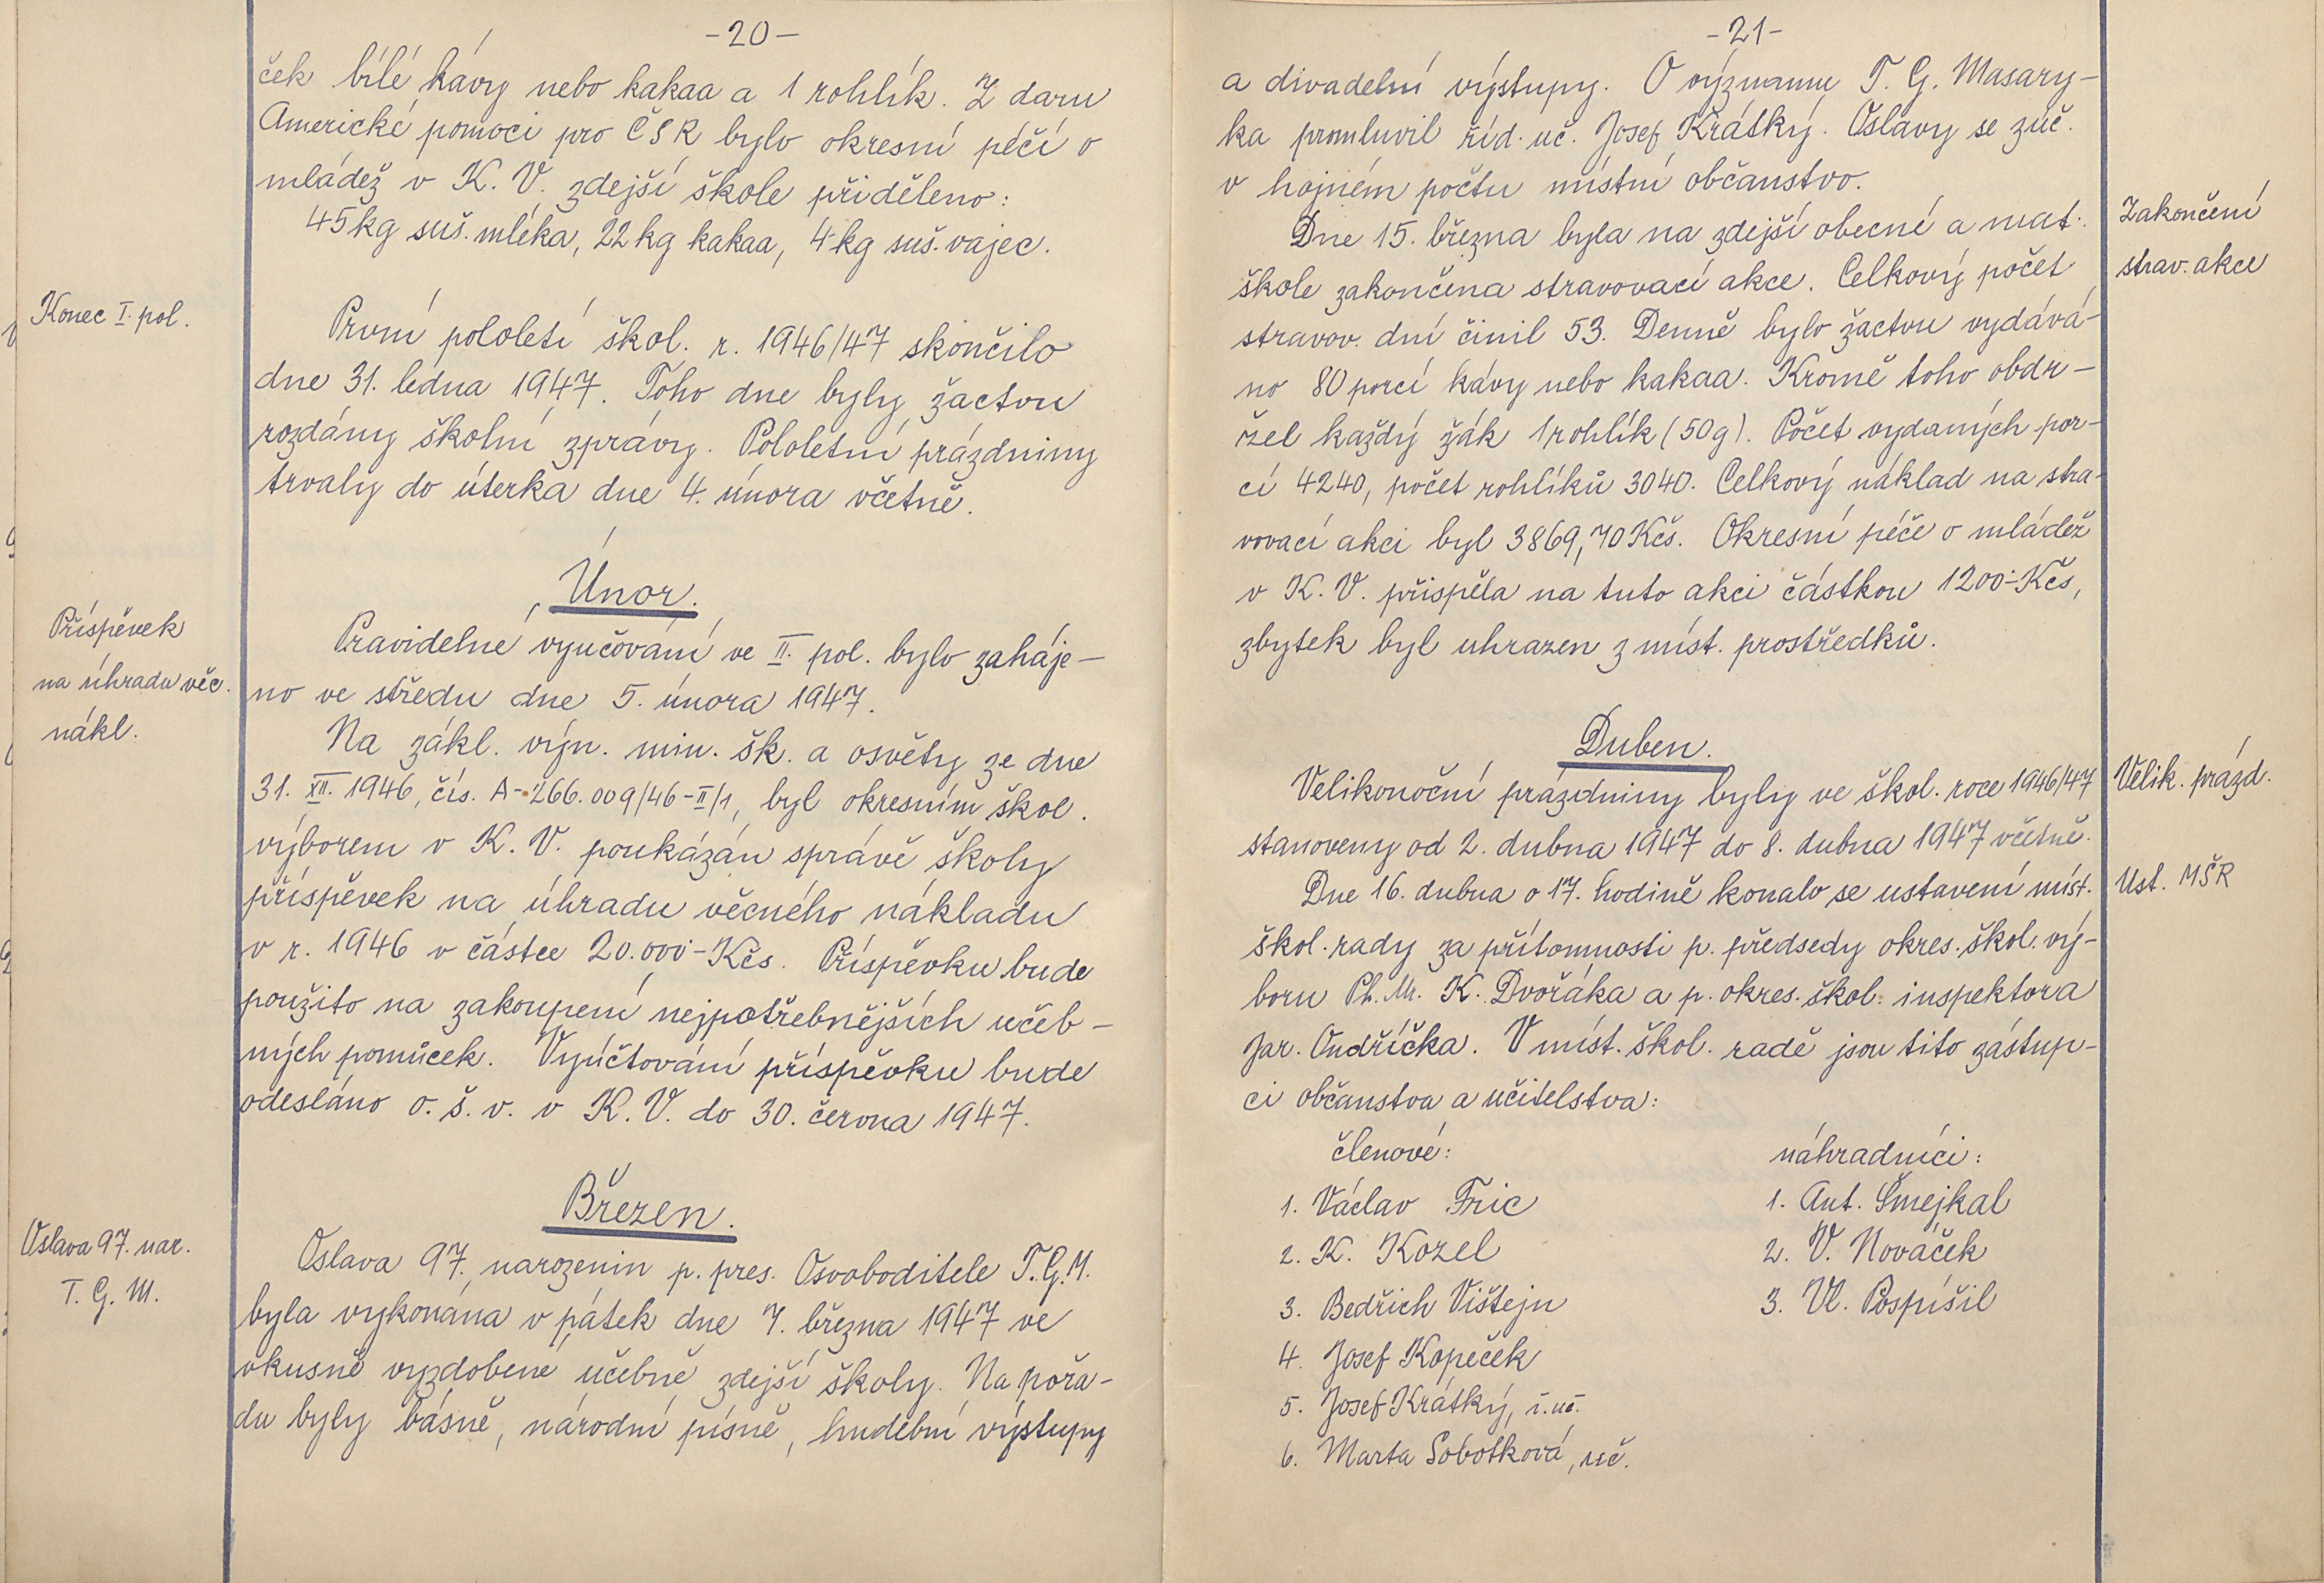 -20-
ček bílé kávy nebo kakaa a 1 rohlík. Z daru
Americké pomoci pro ČSR bylo okresní péčí o
mládež v K. V. zdejší škole přiděleno:
45kg suš. mléka, 22kg kakaa, 4kg suš. vajec.
Konec I. pol.
První pololetí škol. r. 1946/47 skončilo
dne 31. ledna 1947. Toho dne byly žactvu
rozdány školní zprávy. Pololetní prázdniny
trvaly do úterka dne 4. února včetně.
Únor.
Příspěvek
na úhradu věc.
nákl.
Pravidelné vyučování ve II. pol. bylo zaháje-
no ve středu dne 5. února 1947.
Na zákl. výn. min. šk. a osvěty ze dne
31. XII. 1946, čís. A-266.009/46-II/1, byl okresním škol.
výborem v K. V. poukázán správě školy
příspěvek na úhradu věcného nákladu
v r. 1946 v částce 20.000·-Kčs. Příspěvku bude
použito na zakoupení nejpotřebnějších učeb-
ných pomůcek. Vyúčtování příspěvku bude
odesláno o. š. v. v K. V. do 30. června 1947.
Březen.
Oslava 97. nar.
T. G. M.
Oslava 97. narozenin p. pres. Osvoboditele T.G.M.
byla vykonána v pátek dne 7. března 1947 ve
vkusně vyzdobené učebně zdejší školy. Na pořa-
du byly básně, národní písně, hudební výstupy
-21-
a divadelní výstupy. O významu T. G. Masary-
ka promluvil říd. uč. Josef Krátký. Oslavy se zúč.
v hojném počtu místní občanstvo.
Zakončení
strav. akce
Dne 15. března byla na zdejší obecné a mat.
škole zakončena stravovací akce. Celkový počet
stravov. dní činil 53. Denně bylo žactvu vydává-
no 80 porcí kávy nebo kakaa. Kromě toho obdr-
žel každý žák 1 rohlík (50g). Počet vydaných por-
cí 4240, počet rohlíků 3040. Celkový náklad na stra-
vovací akci byl 3869,70 Kčs. Okresní péče o mládež
v K. V. přispěla na tuto akci částkou 1200·-Kčs,
zbytek byl uhrazen z míst. prostředků.
Duben.
Velik. prázd.
Velikonoční prázdniny byly ve škol. roce 1946/47
stanoveny od 2. dubna 1947 do 8. dubna 1947 včetně.
Ust. MŠR
Dne 16. dubna o 17. hodině konalo se ustavení míst.
škol. rady za přítomnosti p. předsedy okres. škol. vý-
boru Ph. Mr. K. Dvořáka a p. okres. škol. inspektora
Jar. Ondříčka. V míst. škol. radě jsou tito zástup-
ci občanstva a učitelstva:
členové:
náhradníci:
1. Václav Fric
1. Ant. Šmejkal
2. K. Kozel
2. V. Nováček
3. Bedřich Vištejn
3. Vl. Pospíšil
4. Josef Kopeček
5. Josef Krátký, ř. uč.
6. Marta Sobotková, uč.